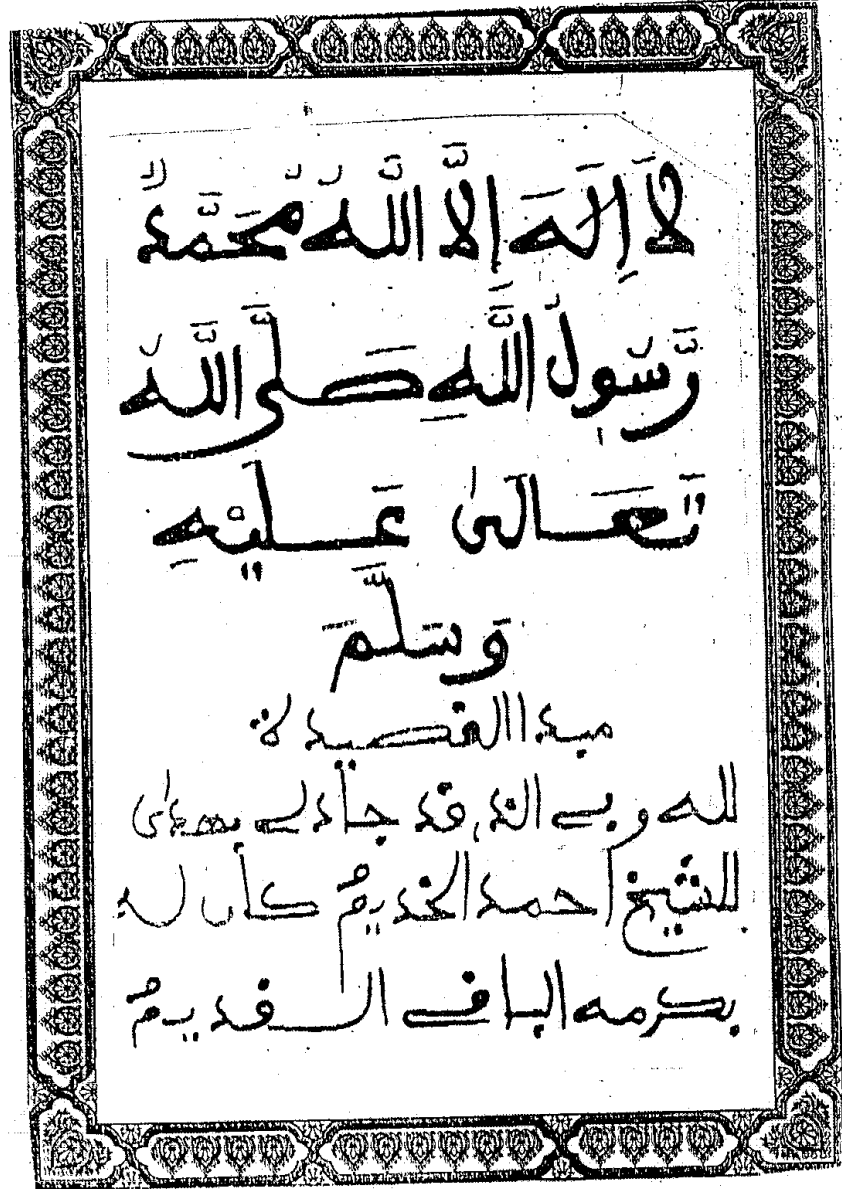 لَا إِلَهَ إِلَّا اللَّهُ مُحَمَّدٌ
رَّسُولُ اللَّهِ صَلَّى اللَّهُ
تَعَالَىٰ عَلَيْهِ
وَسَلَّمَ
هذا القصيدة
لله ربي الذ قد جاد لے
للشيخ أحمد الخديمُ كان له
بكرمه الباقي القديمُ